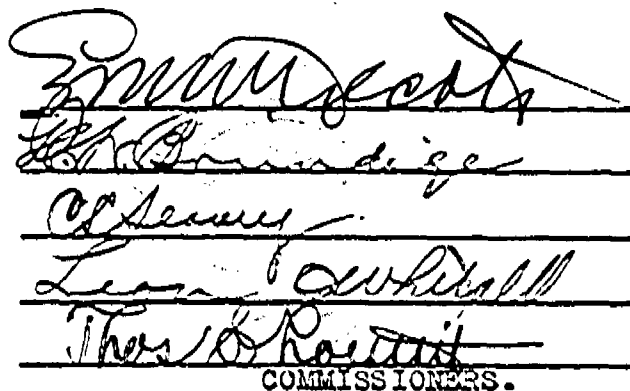 Decoto
Brundige
C L Seavey
Leon O Whitsell
Thos S Louttit
COMMISSIONERS.